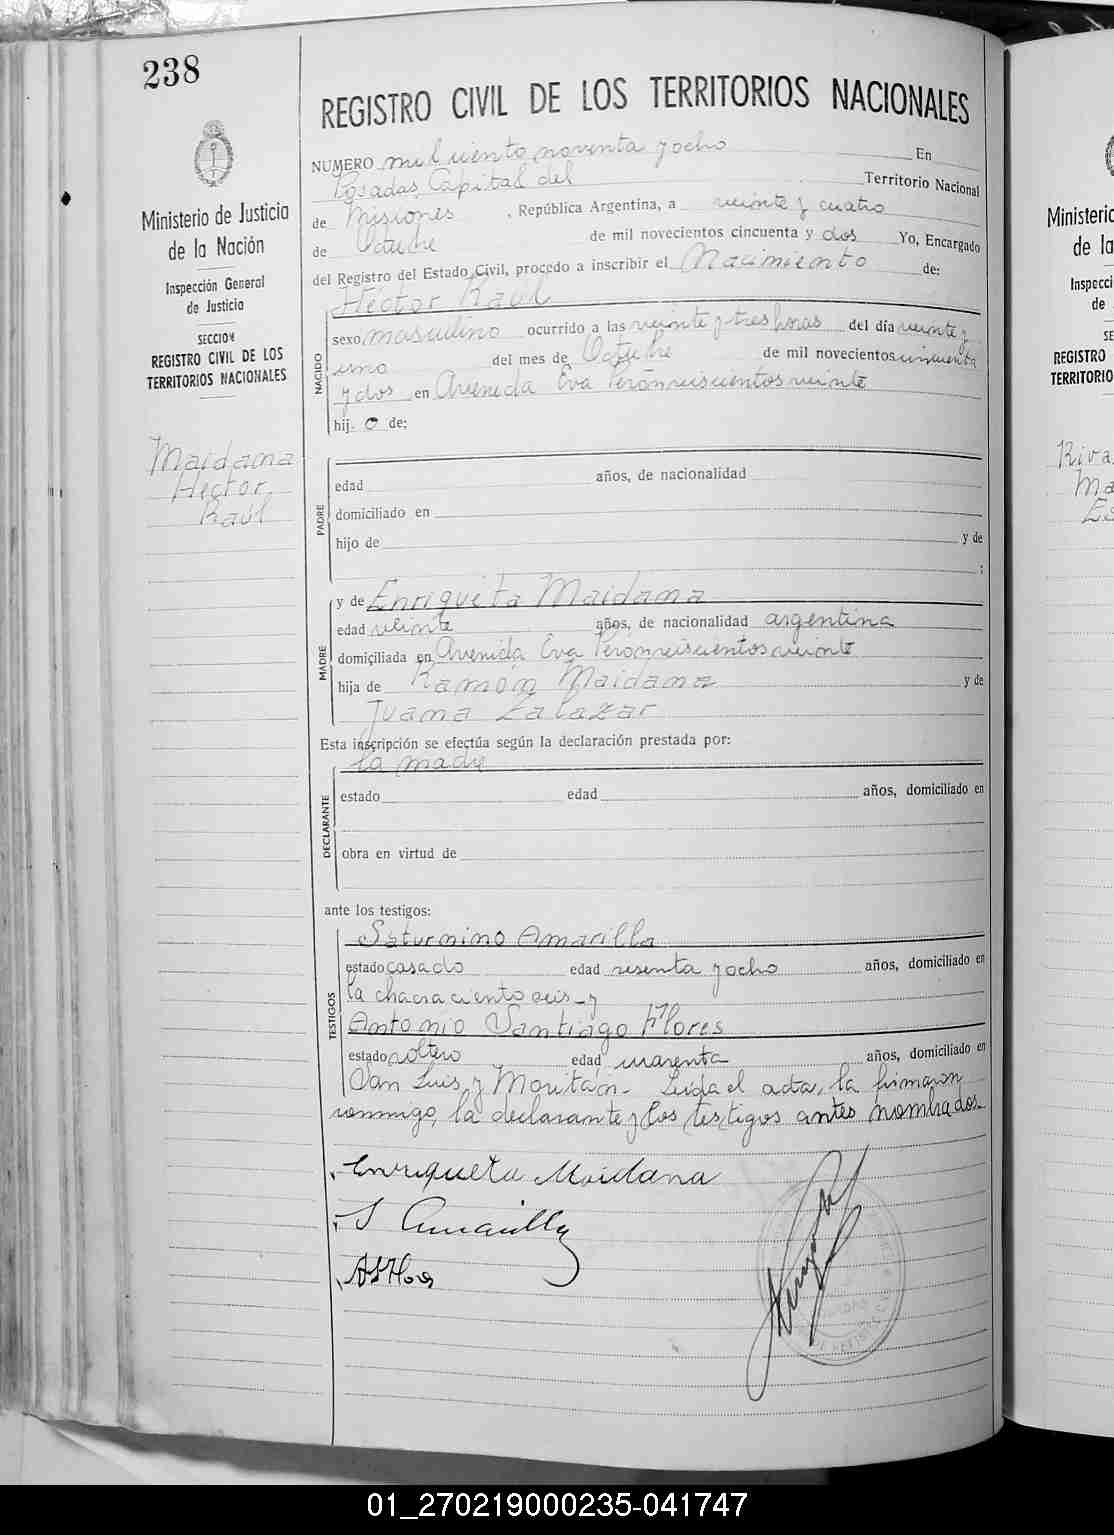 238
REGISTRO CIVIL DE LOS TERRITORIOS NACIONALES
Ministerio de Justicia
de la Nación
Inspección General
de Justicia
SECCION
REGISTRO CIVIL DE LOS
TERRITORIOS NACIONALES
Maidana
Hector
Raúl
NUMERO mil ciento noventa y ocho En
Posadas, Capital del Territorio Nacional
de Misiones, República Argentina, a veinte y cuatro
de Octubre de mil novecientos cincuenta y dos Yo, Encargado
del Registro del Estado Civil, procedo a inscribir el Nacimiento de:
Héctor Raúl
NACIDO
sexo masculino ocurrido a las veinte y tres horas del día veinte y
uno del mes de Octubre de mil novecientos cincuenta
y dos en Avenida Eva Perón seiscientos veinte
hij- o de:
PADRE
edad años, de nacionalidad
domiciliado en
hijo de y de
;
MADRE
y de Enriqueta Maidana
edad veinte años, de nacionalidad argentina
domiciliada en Avenida Eva Perón seiscientos veinte
hija de Ramón Maidana y de
Juana Zalazar
Esta inscripción se efectúa según la declaración prestada por:
la madre
DECLARANTE
estado edad años, domiciliado en
obra en virtud de
ante los testigos:
TESTIGOS
Saturnino Amarilla
estado casado edad sesenta y ocho años, domiciliado en
la chacra ciento seis - y
Antonio Santiago Flores
estado soltero edad cuarenta años, domiciliado en
San Luis y Moritán - Leída el acta, la firmaron
conmigo, la declarante y los testigos antes nombrados -
Enriqueta Maidana
S Amarilla
ASFlores
Ministerio
de la
Inspecci
de
SE
REGISTRO
TERRITORIO
Riva
Ma
Es
01_270219000235-041747